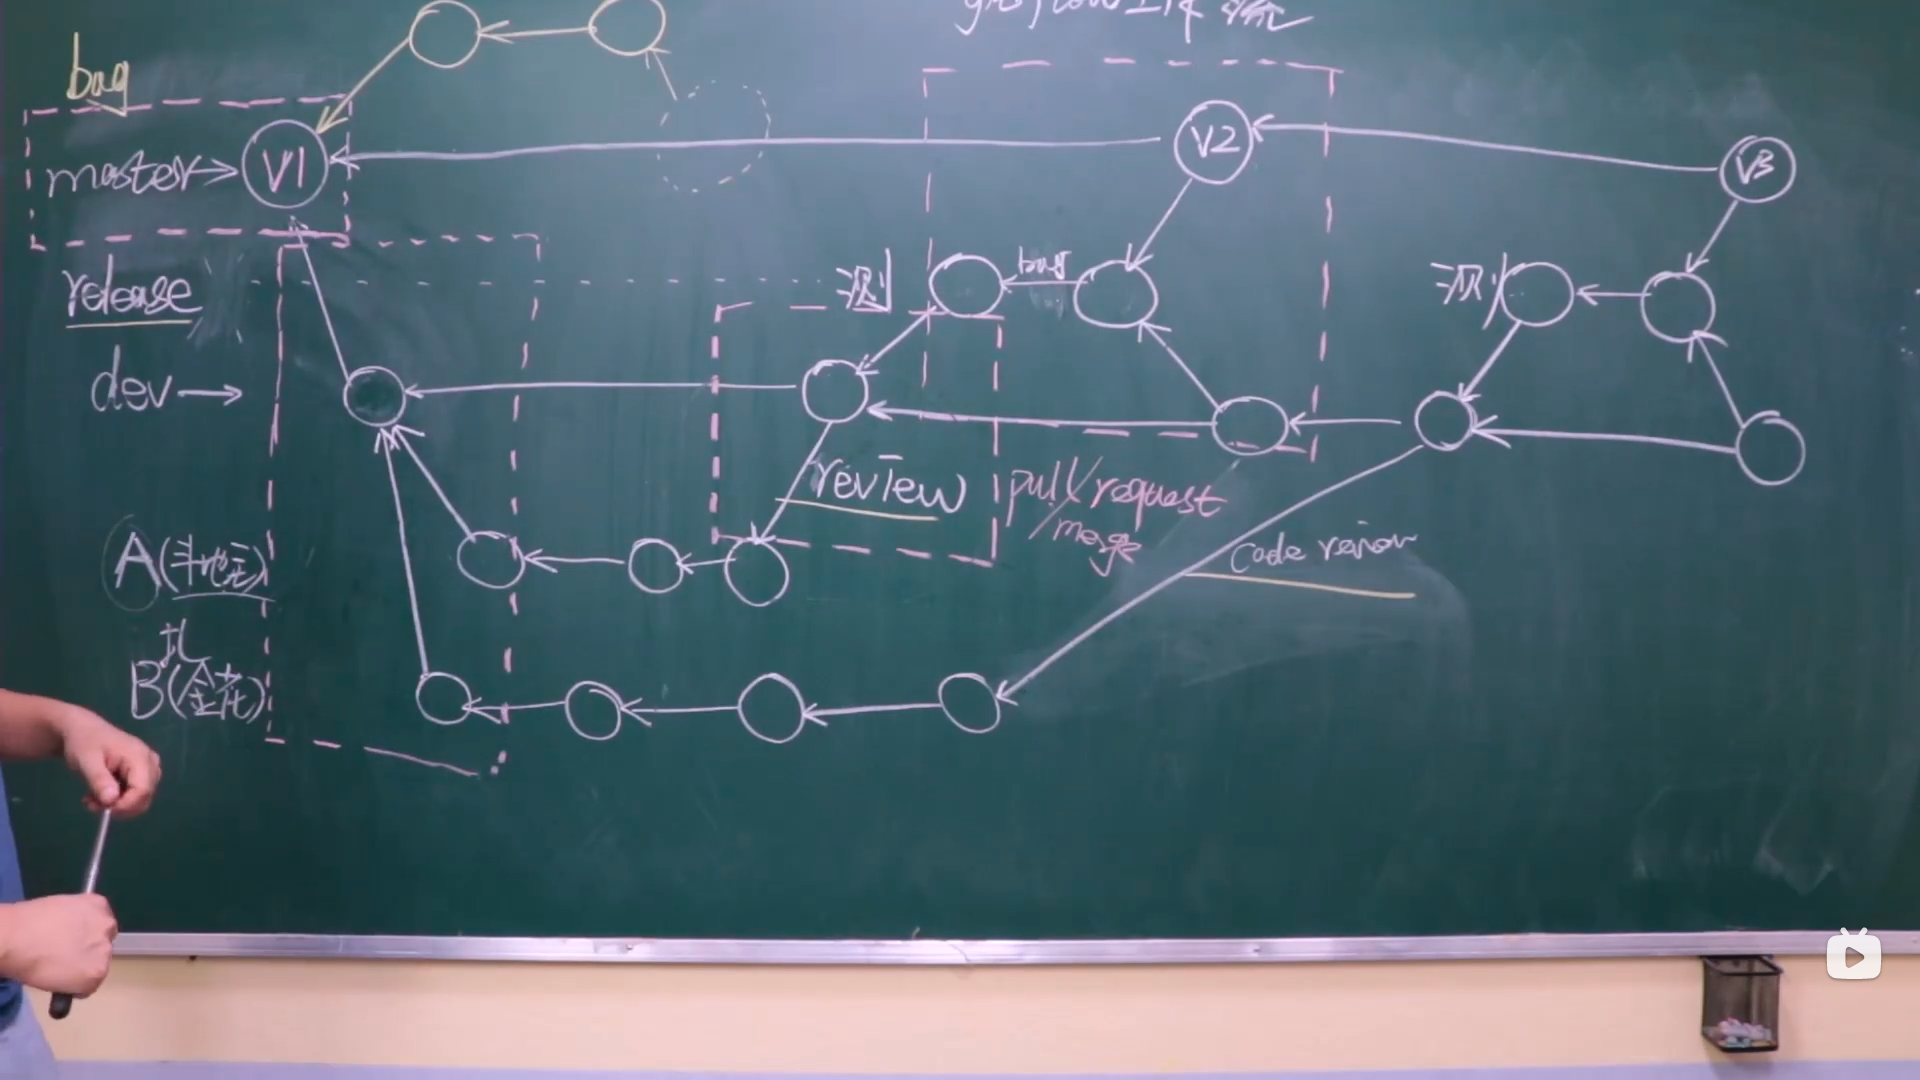 gitflow工作流
bag
master→ V1
V2
V3
release
测
bag
测
dev→
review
pull/request
/merge
Code review
A(斗地主)
扎
B(金花)